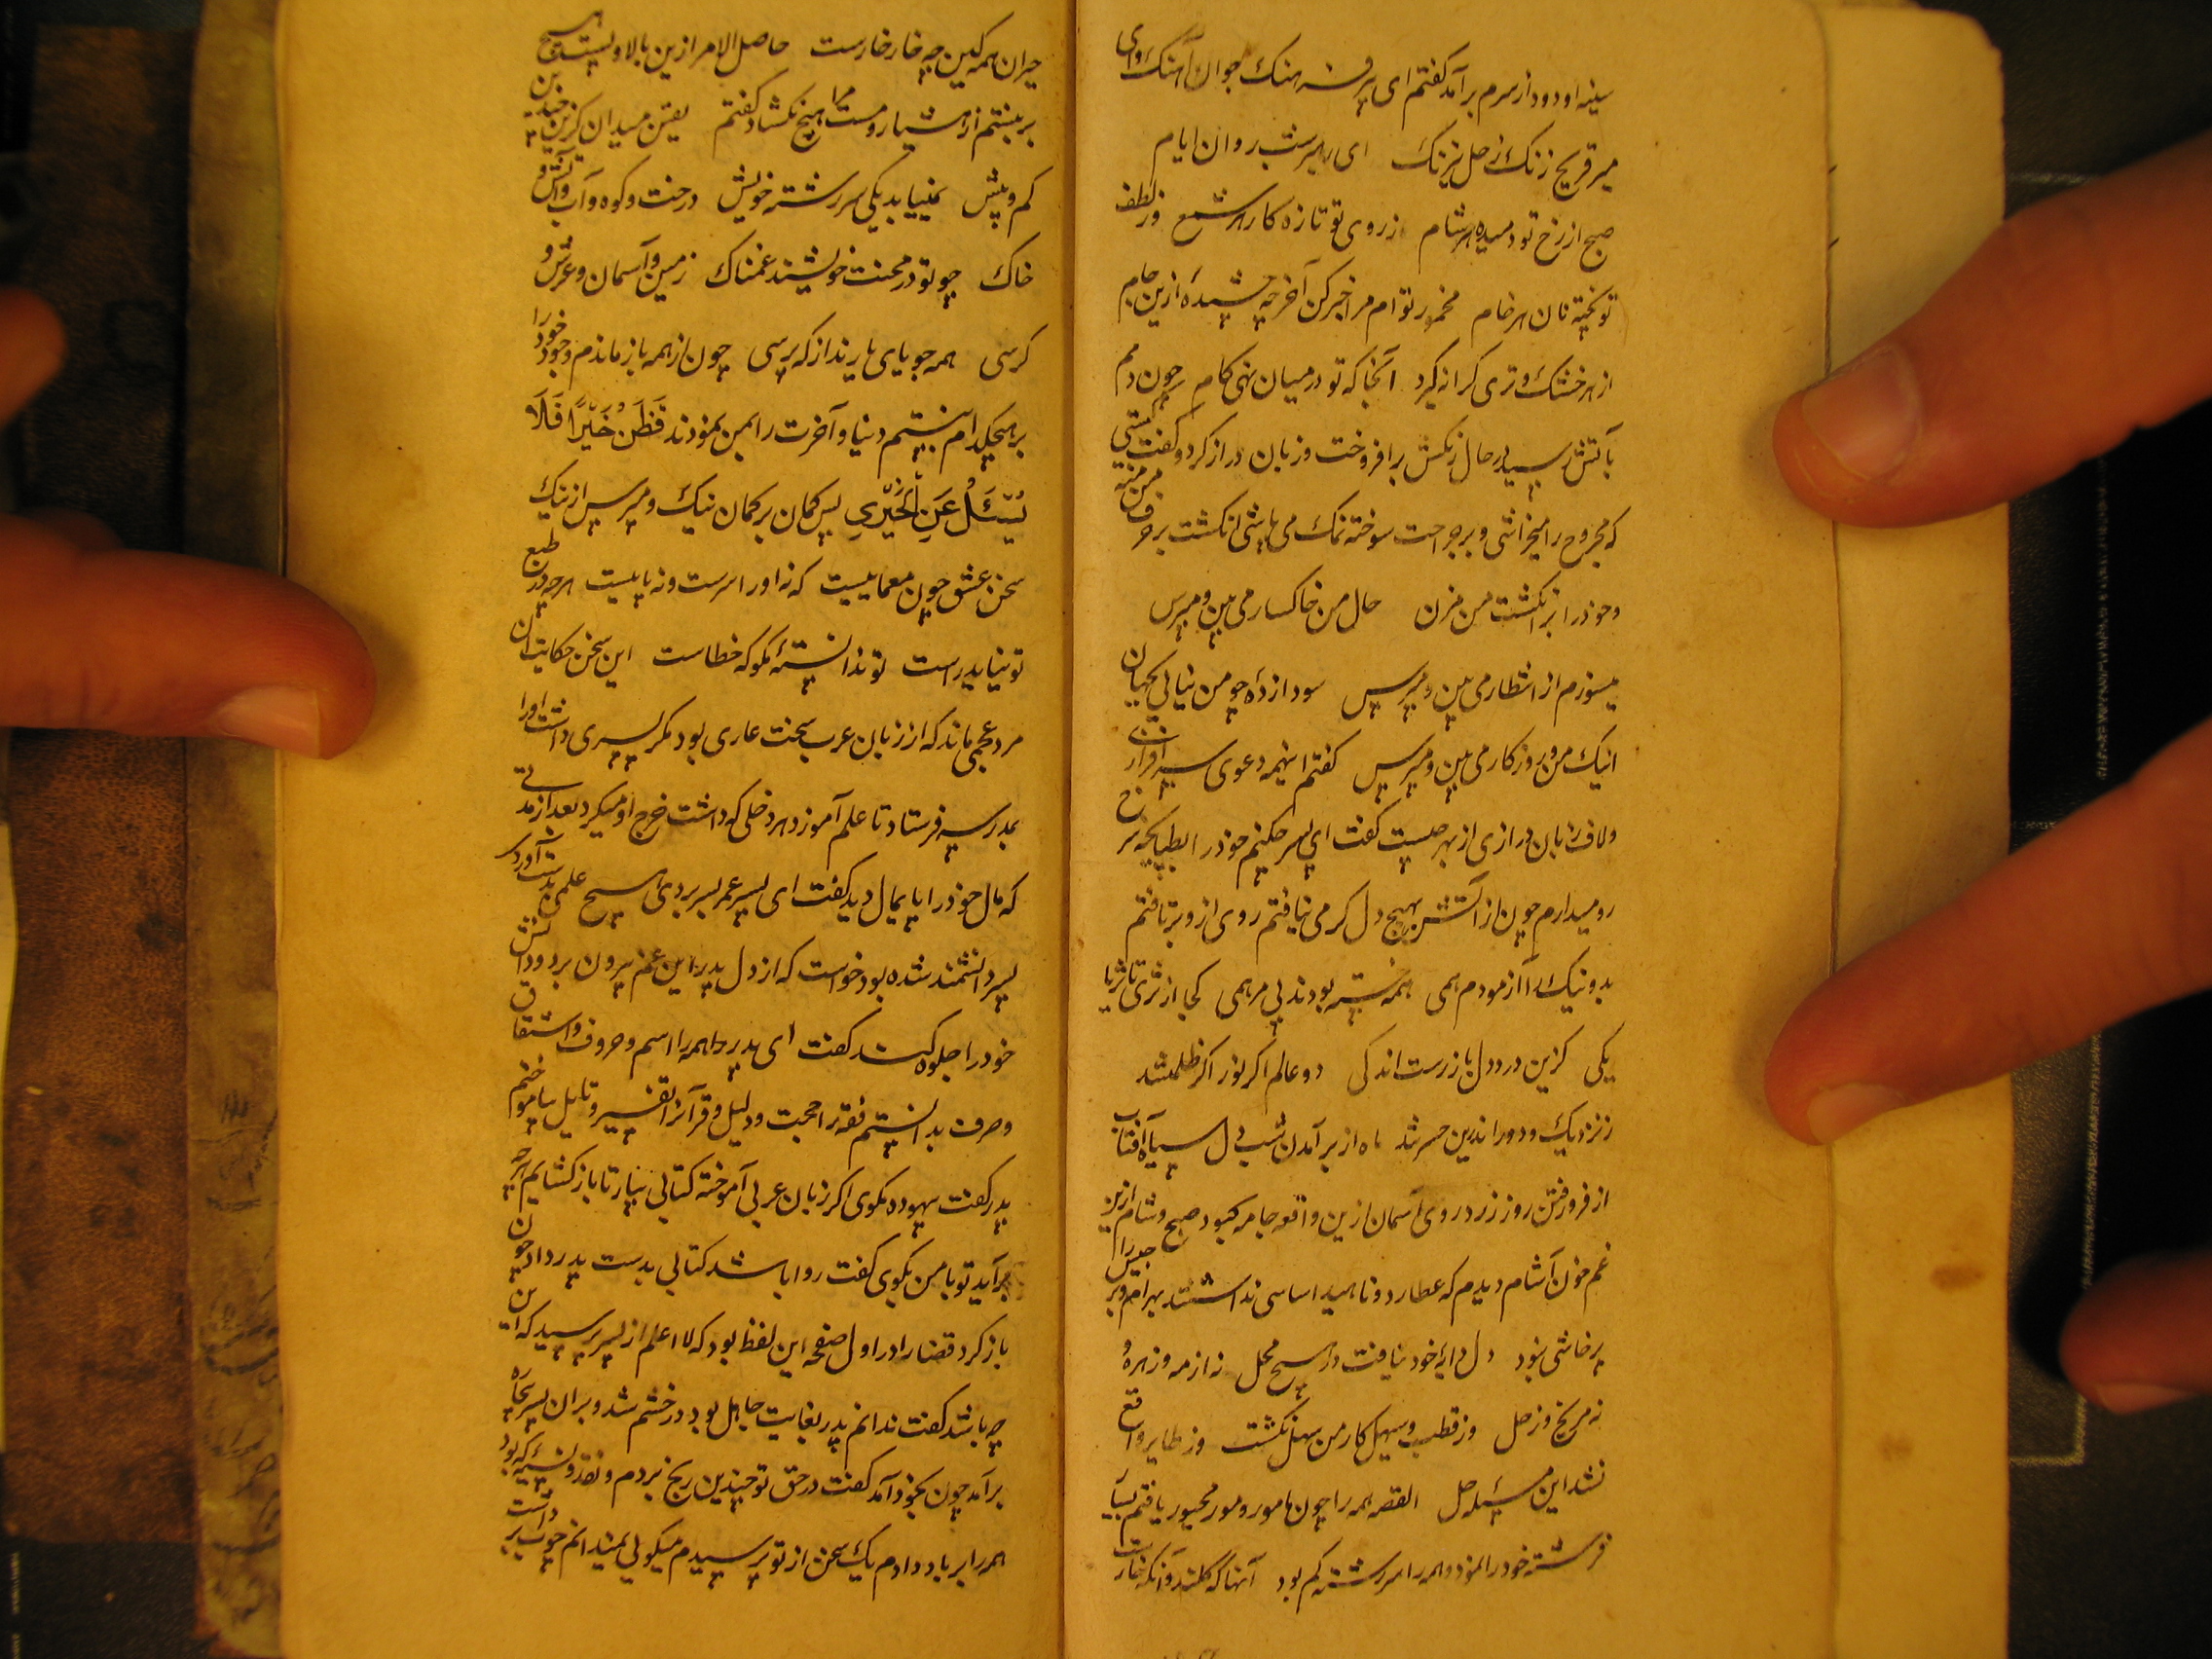 سینه او دود از سرم برآمد گفتم ای پیر آهنک جوان آهنک
میر قریح زنک زحل نیرنک ای رهبر شب روان ایام
صبح از رخ تو دمیده هر شام از روی تو تازه کار هر شمع وز لطف
تو پخته نان هر خام مخمور توام مرا خبر کن آخر چه چشیدهٔ ازین جام
از هر خشک و تری کرانه گیرد آنجا که تو در میان نهی کام چون دمم
بآتش رسید در حال زنکش برافروخت و زبان دراز کرد و گفت
که مجروح را میخراشی و بر جراحت سوخته نمک می پاشی انکشت بر حرف من منه
و خود را بر انکشت من مزن حال من خاکسار می بین و مپرس
میسوزم از انتظار می بین و مپرس سودا زدهٔ چو من نیابی بجهان
اینک من و روزکار می بین و مپرس گفتم اینهمه دعوی سرافرازی
و لاف زبان درازی از بهر چیست گفت ای پسر چکنم خود را بطپانچه سرخ
رو میدارم چون از آتش بهیچ دل کرمی نیافتم روی ازو برتافتم
بد و نیک را آزمودم همی همه خسته بودند بی مرهمی کجا از ثری تا ثریا
یکی کزین درد دل باز رست اندکی دو عالم اکر نور اکر ظلمتند
ز نزدیک و دور اندرین حسرتند ماه از برآمدن شب دل سیاه آفتاب
از فرو رفتن روز زرد روی آسمان ازین واقعه جامه کبود صبح و شام ازین
غم خون آشام دیدم که عطارد و ناهید اساسی نداشتند بهرام و برجیس را
پرخاشی نبود دل دایهٔ خود نیافت در هیچ محل نه از مه و زهره و
نه مریخ و زحل وز قطب و سهیل کار من سهل نکشت وز طایر و واقع
نشد این مسئله حل القصه همه را چون مامور و مور مجبور یافتم بسیار
فرشته خود را نمود و همه را سررشته کم بود آنها که کلند و آنکه خار
حیران همه کین چه خار خارست حاصل الامر ازین بالا و پست هیچ
بر نبستم از هشیار و مست مرا هیچ نکشاد گفتم یقین میدان کزین چندین
کم و بیش نمییابد یکی سررشته خویش درخت و کوه و آب و آتش و
خاک چو تو در محنت خویشند غمناک زمین و آسمان و عرش و
کرسی همه جویای یارند از که پرسی چون از همه باز ماندم و خود را
بر هیچکدام نبستم دنیا و آخرت را بمن نمودند فَظُنَّ خَیْرًا فَلَا
تَسْئَلْ عَنِ الْخَیْرِ پس کمان بر کمان نیک و مپرس از نیک
سخن عشق چون معماییست که نه او را سرست و نه پاییست هرچه در طبع
تو نیاید راست تو ندانستهٔ مگو که خطاست این سخن حکایت آن
مرد عجمی ماند که از زبان عرب سخت عاری بود مکر پسری داشت او را
بمدرسه فرستاد تا علم آموزد هر دخلی که داشت خرج او میکرد بعد از مدتی
که مال خود را پایمال دید گفت ای پسر عمر بسر بردی هیچ علمی بدست آوردی
پسر دانشمند شده بود خواست که از دل پدر این غم بیرون برد و دانش
خود را جلوه کند گفت ای پدر همه را اسم و حروف و اشتقاق
و صرف بدانستم فقه را حجت و دلیل و قرآن را تفسیر و تاویل بیاموختم
پدر گفت بیهوده مگوی اکر زبان عربی آموخته کتابی بیار تا باز کشایم هرچه
برآید تو با من بگوی گفت روا باشد کتابی بدست پدر داد چون
باز کرد قضا را در اول صفحه این لفظ بود که لا اعلم از پسر پرسید که این
چه باشد گفت ندانم پدر بغایت جاهل بود در خشم شد و بر آن پسر بیچاره
برآمد چون بخود آمد گفت در حق تو چندین رنج بردم و نقد و نسیه که بود
همه را بر باد دادم یک سخن از تو پرسیدم میکویی نمیدانم چوب بر